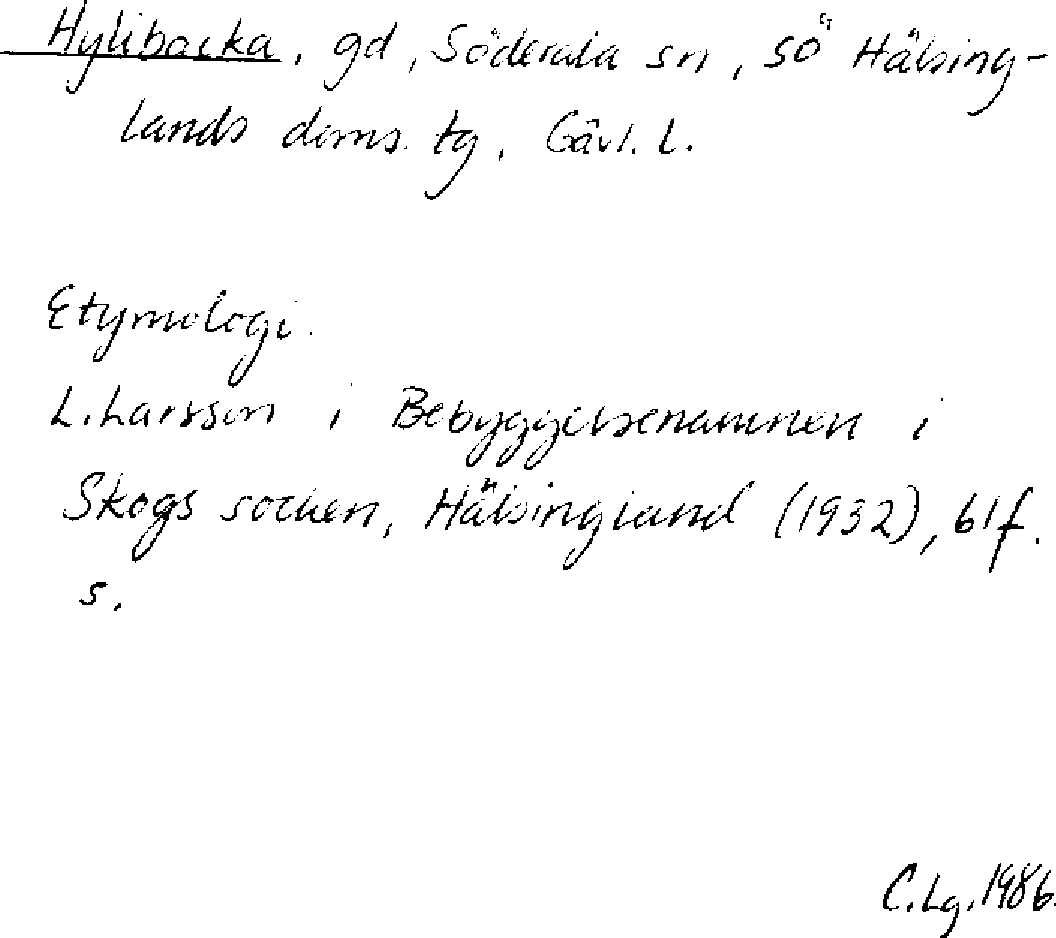 Hylibacka, gd, Söderala sn, sö Hälsing-
lands doms. tg, Gävl. L.
Etymologi.
L. Larsson i Bebyggelsenamnen i
Skogs socken, Hälsingland (1932), 61f.
s.
C.Lg.1986.